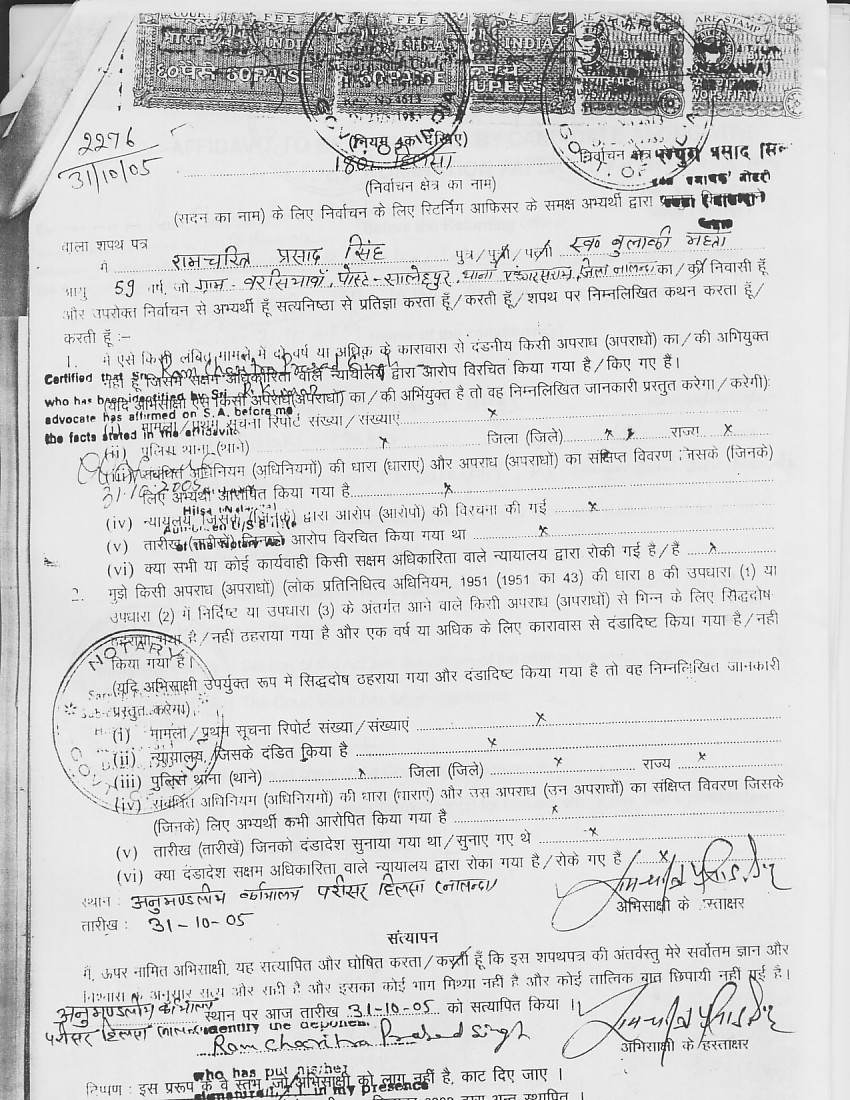 COURT FEE
FEE
भारत INDIA
INDIA
६०पैसे 60 PAISE
60 PAISE
RUPEES
2276
31/10/05
(नियम 4क देखिए)
180 हिलसा निर्वाचन क्षेत्र
(निर्वाचन क्षेत्र का नाम)
(सदन का नाम) के लिए निर्वाचन के लिए रिटर्निंग आफिसर के समक्ष अभ्यर्थी द्वारा
वाला शपथ पत्र
मै रामचरित्र प्रसाद सिंह पुत्र/पुत्री/पत्नी स्व० बुलाकी महतो
आयु 59 वर्ष, जो ग्राम- पोस्ट-सालेहपुर, थाना जिला नालन्दा का/की निवासी हूँ
और उपरोक्त निर्वाचन से अभ्यर्थी हूँ सत्यनिष्ठा से प्रतिज्ञा करता हूँ/करती हूँ/शपथ पर निम्नलिखित कथन करता हूँ/
करती हूँ :–
1. मै ऐसे किसी लंबित मामले में दो वर्ष या अधिक के कारावास से दंडनीय किसी अपराध (अपराधों) का/की अभियुक्त
Certified that Sri Ram Charitra Prasad Singh
नहीं हूँ जिसमें सक्षम अधिकारिता वाले न्यायालय द्वारा आरोप विरचित किया गया है/किए गए है।
who has been identified by Sri
(यदि अभिसाक्षी ऐसे किसी अपराध(अपराधों) का/की अभियुक्त है तो वह निम्नलिखित जानकारी प्रस्तुत करेगा/करेगी):
advocate has affirmed on S. A. before me
(i) मामला/प्रथम सूचना रिपोर्ट संख्या/संख्याएं x
the facts stated in the affidavit
(ii) पुलिस थाना (थाने) x जिला (जिले) x x राज्य x
(iii) संबंधित अधिनियम (अधिनियमों) की धारा (धाराएं) और अपराध (अपराधों) का संक्षिप्त विवरण जिसके (जिनके)
31.10.2005
लिए अभ्यर्थी आरोपित किया गया है x
(iv) न्यायालय, जिसके (जिनके) द्वारा आरोप (आरोपों) की विरचना की गई x
(v) तारीख (तारीखें) आरोप विरचित किया गया था x
of the Notary Act
(vi) क्या सभी या कोई कार्यवाही किसी सक्षम अधिकारिता वाले न्यायालय द्वारा रोकी गई है/है x
2. मुझे किसी अपराध (अपराधों) (लोक प्रतिनिधित्व अधिनियम, 1951 (1951 का 43) की धारा 8 की उपधारा (1) या
उपधारा (2) में निर्दिष्ट या उपधारा (3) के अंतर्गत आने वाले किसी अपराध (अपराधों) से भिन्न के लिए सिद्धदोष
ठहराया गया है/नहीं ठहराया गया है और एक वर्ष या अधिक के लिए कारावास से दंडादिष्ट किया गया है/नही
किया गया है।
NOTARY
(यदि अभिसाक्षी उपर्युक्त रूप में सिद्धदोष ठहराया गया और दंडादिष्ट किया गया है तो वह निम्नलिखित जानकारी
प्रस्तुत करेगा)
(i) मामला/प्रथम सूचना रिपोर्ट संख्या/संख्याएं x
(ii) न्यायालय, जिसके दंडित किया है x
(iii) पुलिस थाना (थाने) x जिला (जिले) x राज्य x
(iv) संबंधित अधिनियम (अधिनियमों) की धारा (धाराएं) और उस अपराध (उन अपराधों) का संक्षिप्त विवरण जिसके
(जिनके) लिए अभ्यर्थी कभी आरोपित किया गया है x
(v) तारीख (तारीखें) जिनको दंडादेश सुनाया गया था/सुनाए गए थे x
(vi) क्या दंडादेश सक्षम अधिकारिता वाले न्यायालय द्वारा रोका गया है/रोके गए हैं x
स्थान : अनुमण्डलीय कार्यालय परीसर हिलसा (नालन्दा)
अभिसाक्षी के हस्ताक्षर
तारीख : 31-10-05
सत्यापन
मै, ऊपर नामित अभिसाक्षी, यह सत्यापित और घोषित करता/करती हूँ कि इस शपथपत्र की अंतर्वस्तु मेरे सर्वोतम ज्ञान और
विश्वास के अनुसार सत्य और सही है और इसका कोई भाग मिथ्या नहीं है और कोई तात्विक बात छिपायी नहीं गई है।
अनुमण्डलीय कार्यालय स्थान पर आज तारीख 31-10-05 को सत्यापित किया ।
परीसर हिलसा identify the deponent
Ram Charitra Prasad Singh
अभिसाक्षी के/हस्ताक्षर
who has put his/her
टिप्पण : इस प्ररूप के वे स्तंभ, जो अभिसाक्षी को लागू नहीं है, काट दिए जाए ।
signature/L.T.I. in my presence